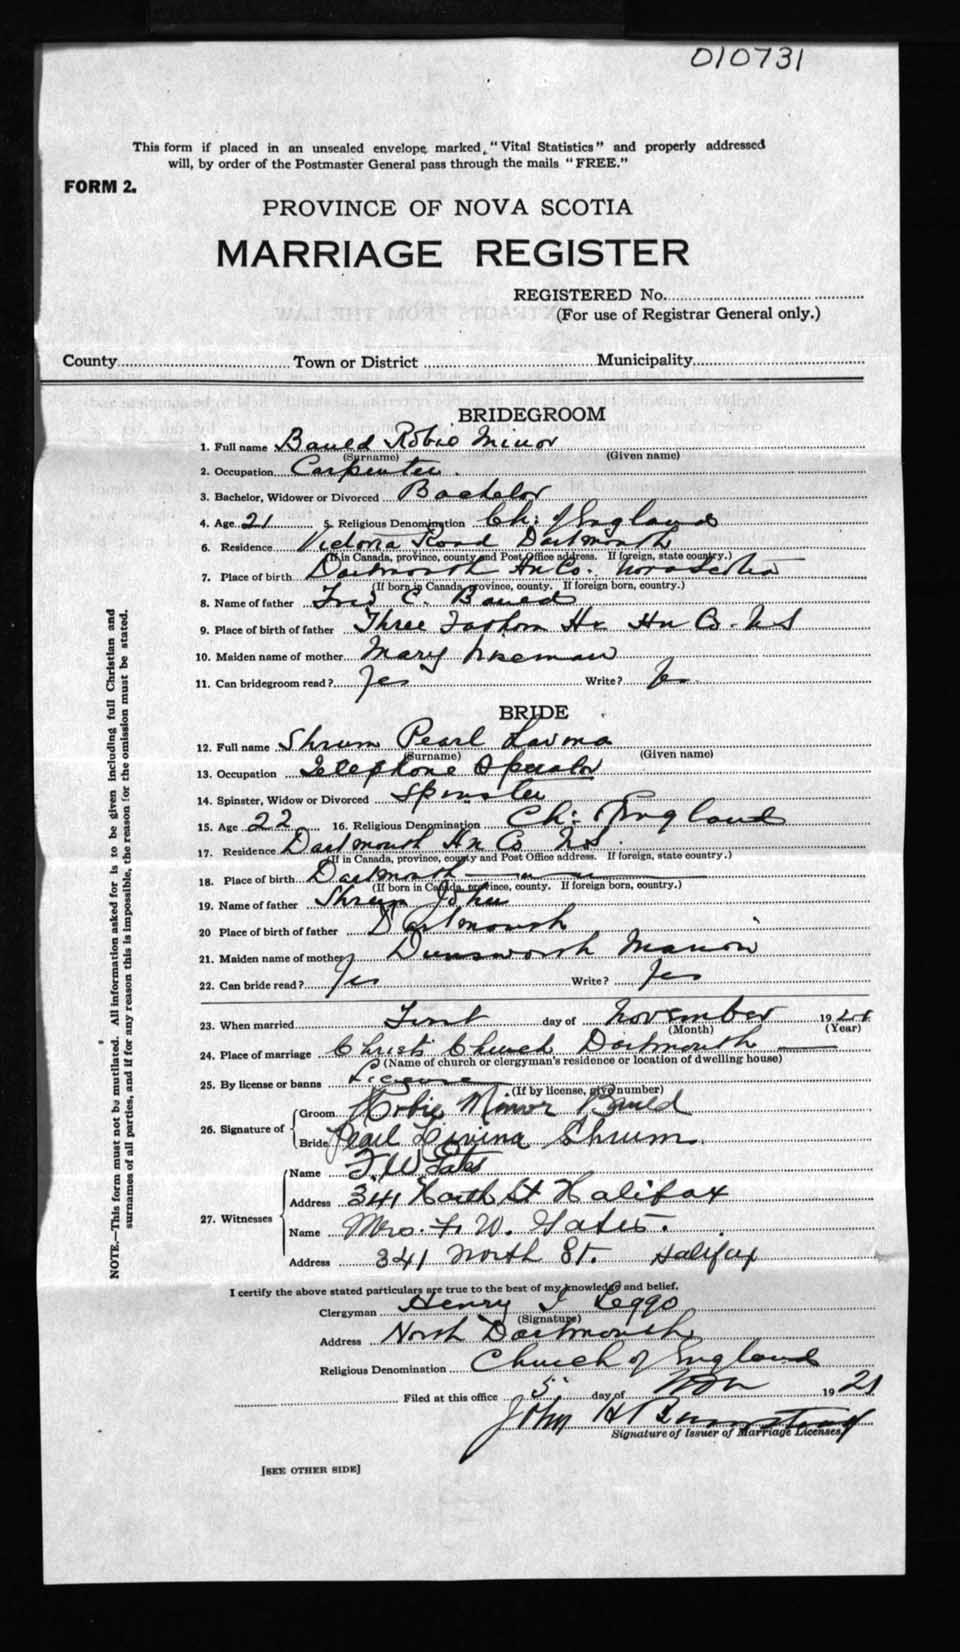 010731
This form if placed in an unsealed envelope, marked, "Vital Statistics" and properly addressed
will, by order of the Postmaster General pass through the mails "FREE."
FORM 2.
PROVINCE OF NOVA SCOTIA
MARRIAGE REGISTER
REGISTERED No.
(For use of Registrar General only.)
County Town or District Municipality
BRIDEGROOM
1. Full name Bauld Robie Minor
(Surname) (Given name)
2. Occupation Carpenter.
3. Bachelor, Widower or Divorced Bachelor
4. Age 21 5. Religious Denomination Ch: of England
6. Residence Victoria Road Dartmouth
(If in Canada, province, county and Post Office address. If foreign, state country.)
7. Place of birth Dartmouth Hx Co. Nova Scotia
(If born in Canada, province, county. If foreign born, country.)
8. Name of father C. Bauld
9. Place of birth of father Three Fathom Hr Hx Co. N S
10. Maiden name of mother Mary
11. Can bridegroom read? Yes Write? Yes
BRIDE
12. Full name Shrum Pearl
(Surname) (Given name)
13. Occupation Telephone Operator
14. Spinster, Widow or Divorced Spinster
15. Age 22 16. Religious Denomination Ch: of England
17. Residence Dartmouth Hx Co N.S.
(If in Canada, province, county and Post Office address. If foreign, state country.)
18. Place of birth Dartmouth — " — " —
(If born in Canada, province, county. If foreign born, country.)
19. Name of father Shrum John
20 Place of birth of father Dartmouth
21. Maiden name of mother Dunsworth Marion
22. Can bride read? Yes Write? Yes
23. When married First day of November 1921
(Month) (Year)
24. Place of marriage Christ Church Dartmouth
(Name of church or clergyman's residence or location of dwelling house)
25. By license or banns License
(If by license, give number)
26. Signature of
Groom Robie Minor Bauld
Bride Pearl Lavina Shrum.
27. Witnesses
Name F. W. Gates
Address 341 North St Halifax
Name Mrs. F. W. Gates.
Address 341 North St. Halifax
I certify the above stated particulars are true to the best of my knowledge and belief.
Clergyman Henry Leggo
(Signature)
Address North Dartmouth
Religious Denomination Church of England
Filed at this office 5 day of Nov 1921
John H
Signature of Issuer of Marriage Licenses
[SEE OTHER SIDE]
NOTE.—This form must not be mutilated. All information asked for is to be given including full Christian and
surnames of all parties, and if for any reason this is impossible, the reason for the omission must be stated.